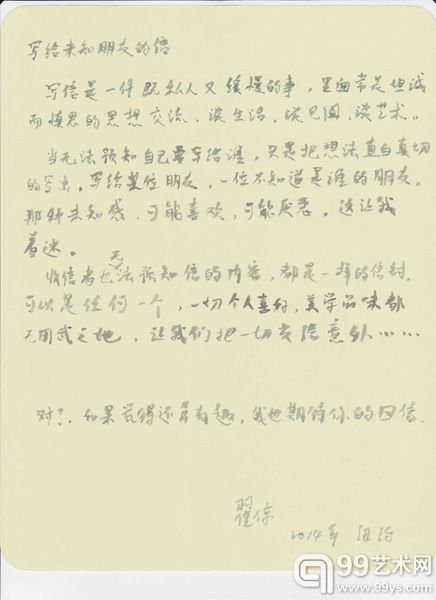 写给未知朋友的信
写信是一件既私人又缓慢的事，里面常是坦诚
而慎思的思想交流、谈生活，谈见闻，谈艺术。
当无法预知自己要写给谁，只是把想法直白真切
的写出。写给某位朋友，一位不知道是谁的朋友。
那种未知感，可能喜欢，可能厌恶。这让我
着迷。
收信者也无法预知信的内容，都是一样的信封，
可以是任何一个，一切个人喜好，美学品味都
无用武之地，让我们把一切交给意外……
对了，如果觉得还算有趣，我也期待你的回信。
翟倞
2014年 纽约
99艺术网
www.99ys.com